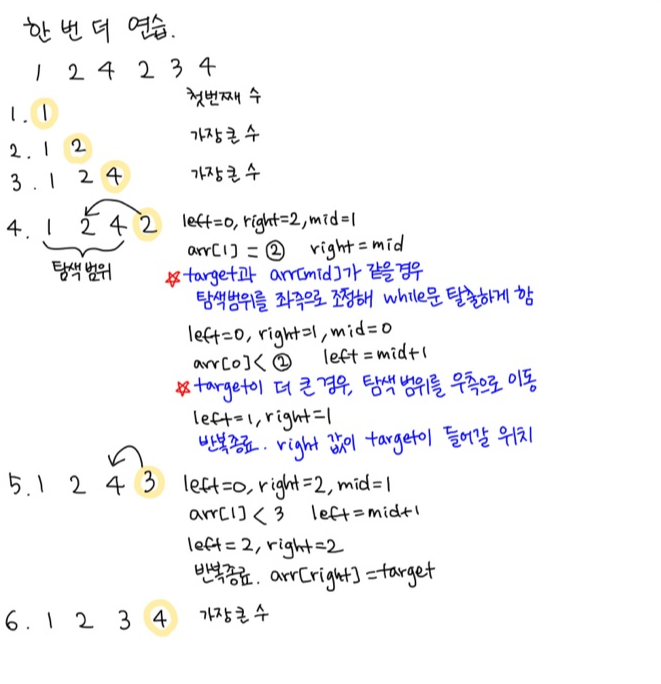 한 번 더 연습.
1 2 4 2 3 4
첫번째 수
1. 1
가장 큰 수
2. 1 2
가장 큰 수
3. 1 2 4
4. 1 2 4 2 left=0, right=2, mid=1
탐색범위 arr[1] = ② right = mid
☆target과 arr[mid]가 같을 경우
탐색범위를 좌측으로 조정해 while문 탈출하게 함
left=0, right=1, mid=0
arr[0] < ② left = mid+1
☆target이 더 큰 경우, 탐색 범위를 우측으로 이동
left=1, right=1
반복종료. right 값이 target이 들어갈 위치
5. 1 2 4 3 left=0, right=2, mid=1
arr[1] < 3 left=mid+1
left = 2, right=2
반복종료. arr[right] = target
6. 1 2 3 4 가장 큰 수